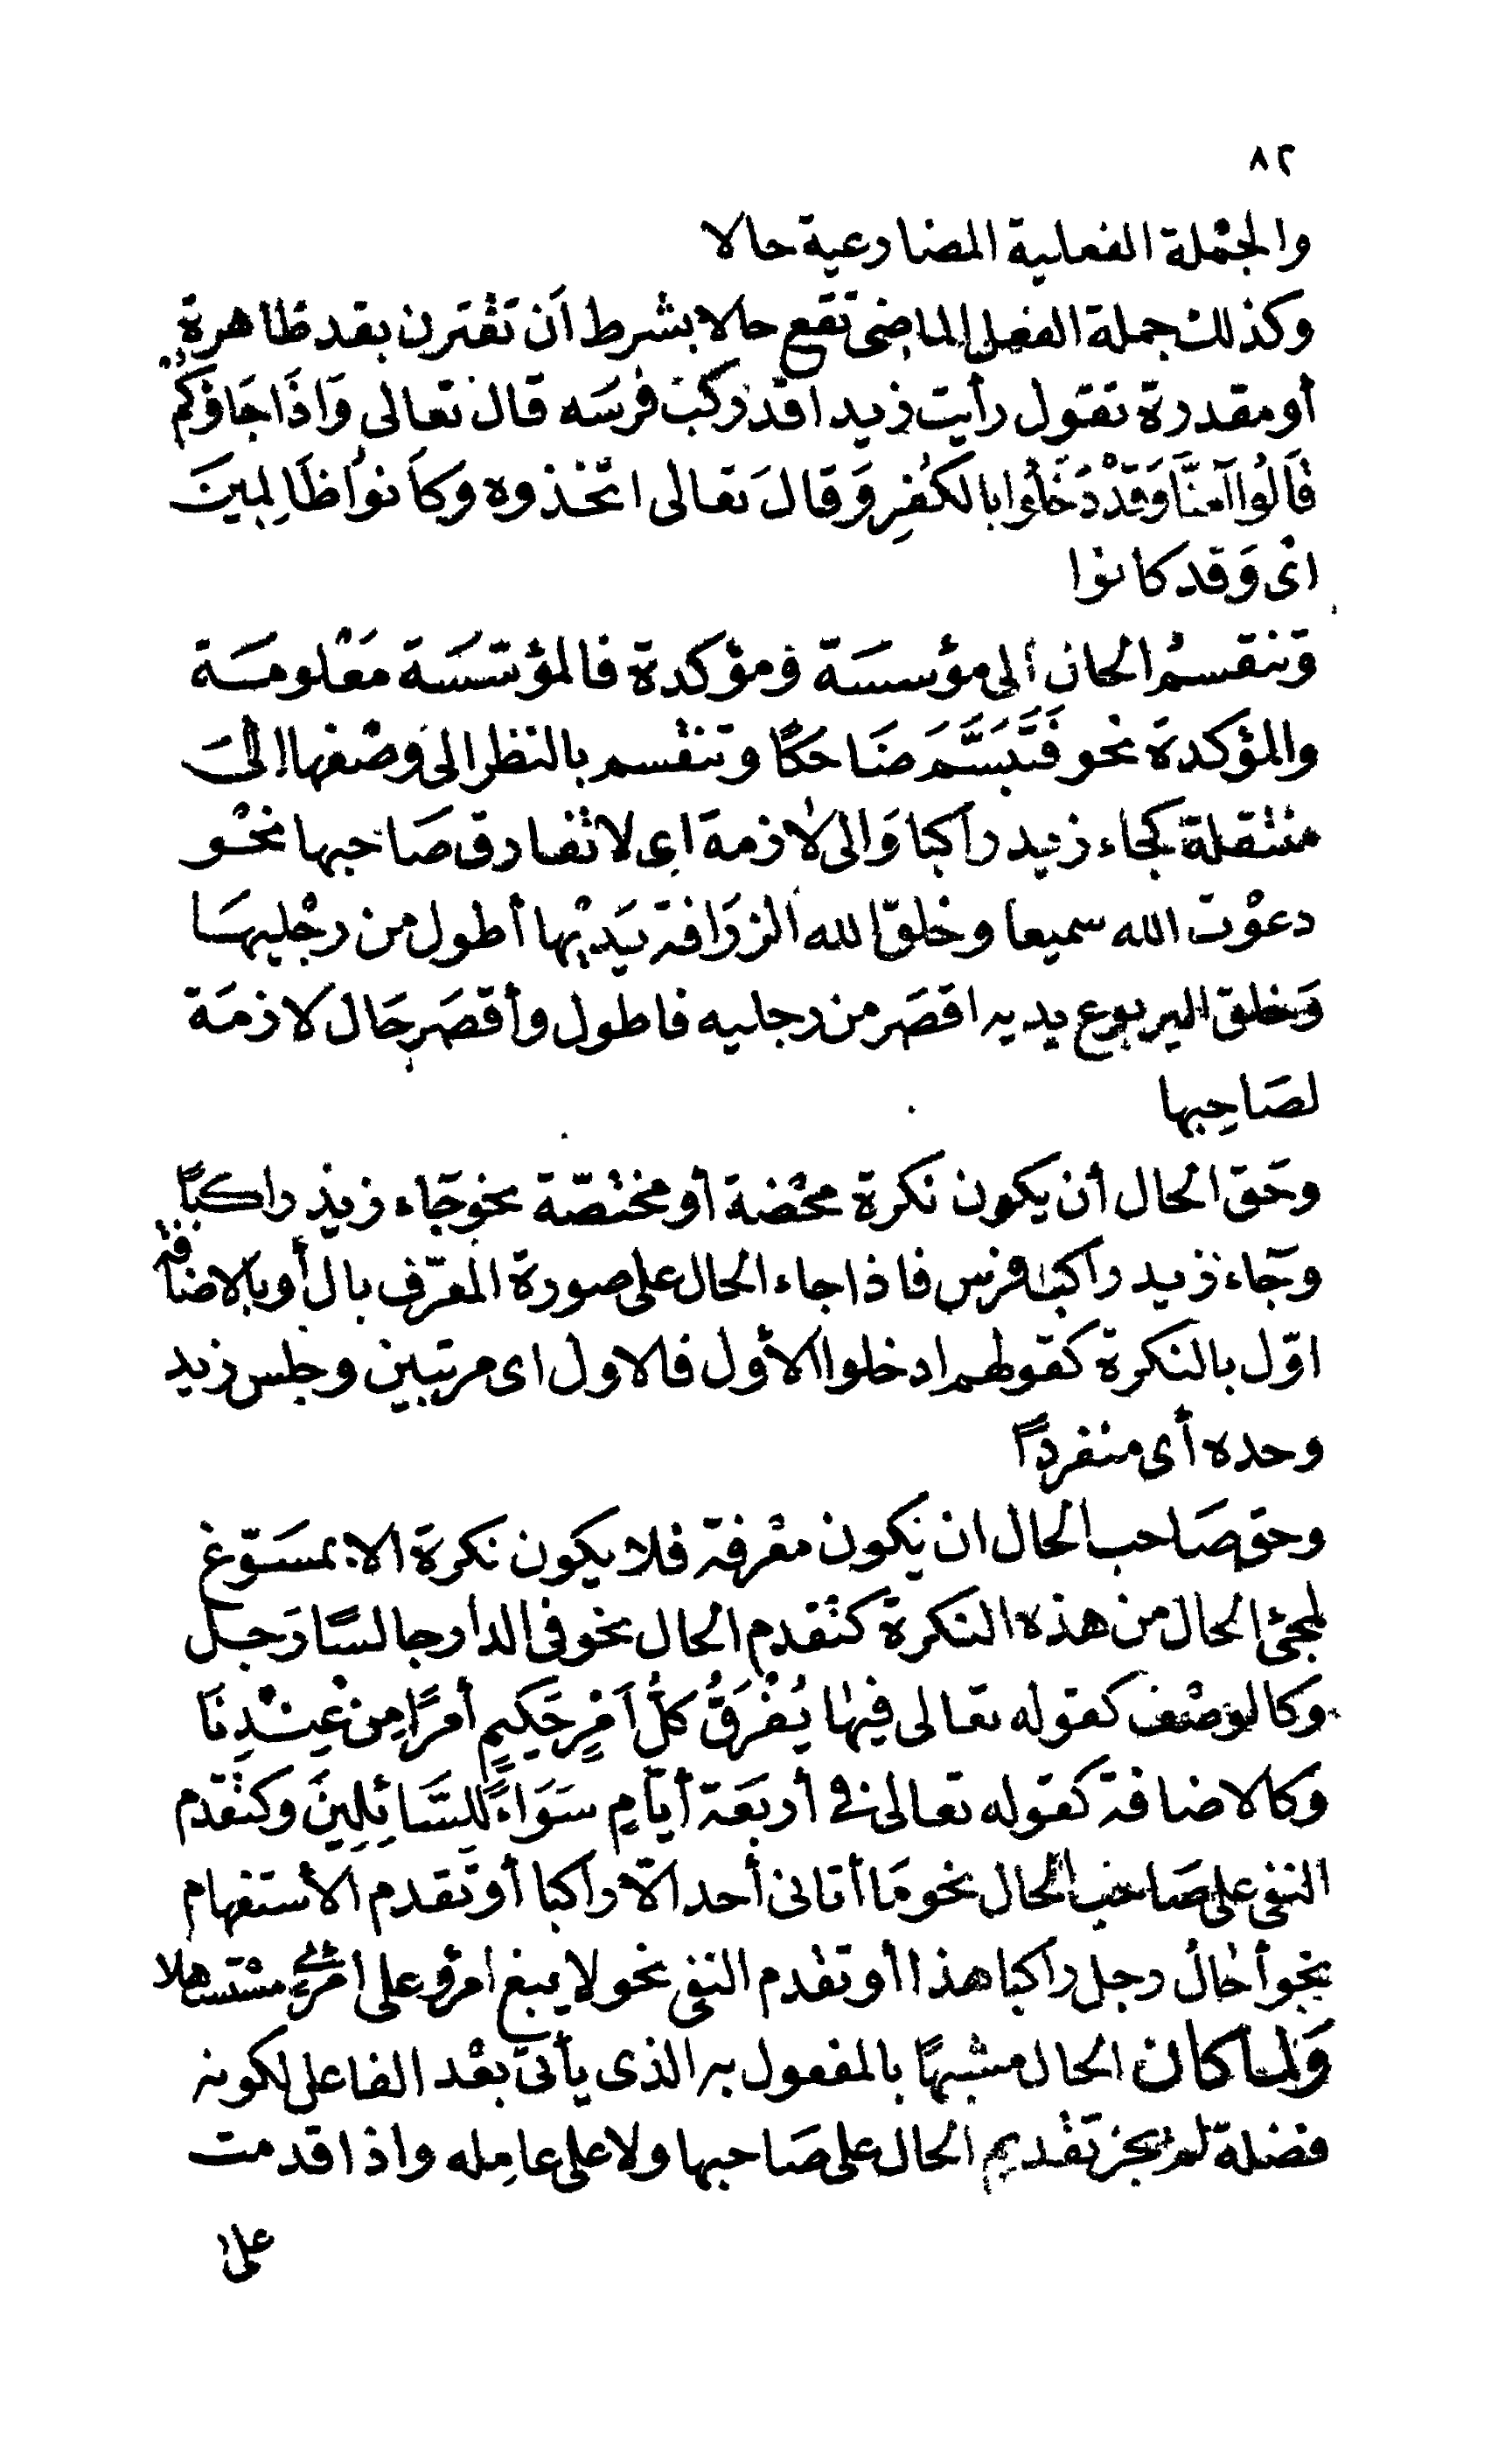 ٨٢
والجمْلة الفعلية المضارعية حالا
وكذلك جملة الفعل الماضى تقع حالا بشرط أن تقترن بقد ظاهرة
أو مقدرة تقول رأيت زيدا قد ركب فرسَه قال تعالى وَاذَا جَاؤكُمْ
قَالُوا آمنَّا وَقَدْ دَخَلُوا بالكفرِ وَقالَ تعالى اتخذوه وكاَنوُا ظَالِمِينَ
اىْ وَقد كانوا
وَتنقسمُ الحال الى مؤسسَة ومؤكدة فالمؤسّسَة مَعْلومَة
والمؤكدة نحو فَتَبَسَّمَ ضَاحكًا وتنقسم بالنظر الى وصْفها الىَ
منتقلة كجاء زيد راكبا وَالى لازمة اى لا تفارق صَاحبها نحْو
دعوْت الله سميعا وخلق الله الزرَافة يَدَيْها أطول من رجْليهَا
وَخلق اليربوع يديه اقصَر من رجليه فاطول وأقصَر حَال لازمَة
لصَاحِبها
وحَق الحال أن يكون نكرة محْضة أو مختصّة نحو جَاء زيد راكبًا
وجَاء زيد راكب فرس فاذا جاء الحال على صورة المعَرّف بال أو بالاضافة
اوّل بالنكرة كقولهم ادخلوا الأوّل فالاول اى مرتبين وجلس زيد
وحده أى منفردًا
وحق صَاحب الحال ان يكون معْرفة فلا يكون نكرة الا بمسَوّغ
لمجئ الحال من هذه النكرة كتقدم الحال نحو فى الدار جالسًا رَجل
وكالوصْف كقوله تعالى فيهَا يُفْرَقُ كلُّ اَمْرٍ حَكيمٍ أمْرًا مِنْ عِنْدِنَا
وكالاضافة كقوله تعالى فى أربَعَة أيّامٍ سَوَاءً لِلسَّائِلِينَ وكتقدم
النفى على صَاحب الحال نحو مَا أتانى أحد الّا راكبا أو تقدم الأستفهام
نحو أخالُ رجل راكبا هذا أو تقدم النفى نحو لا يبغ امْرؤ على امْرئ مسْتسهلا
وَلما كان الحال مشبهًا بالمفعول به الذى يأتى بعْد الفاعل لكونه
فضلة لم يجز تقديم الحال على صَاحبها ولا على عامِله واذا قدمت
على